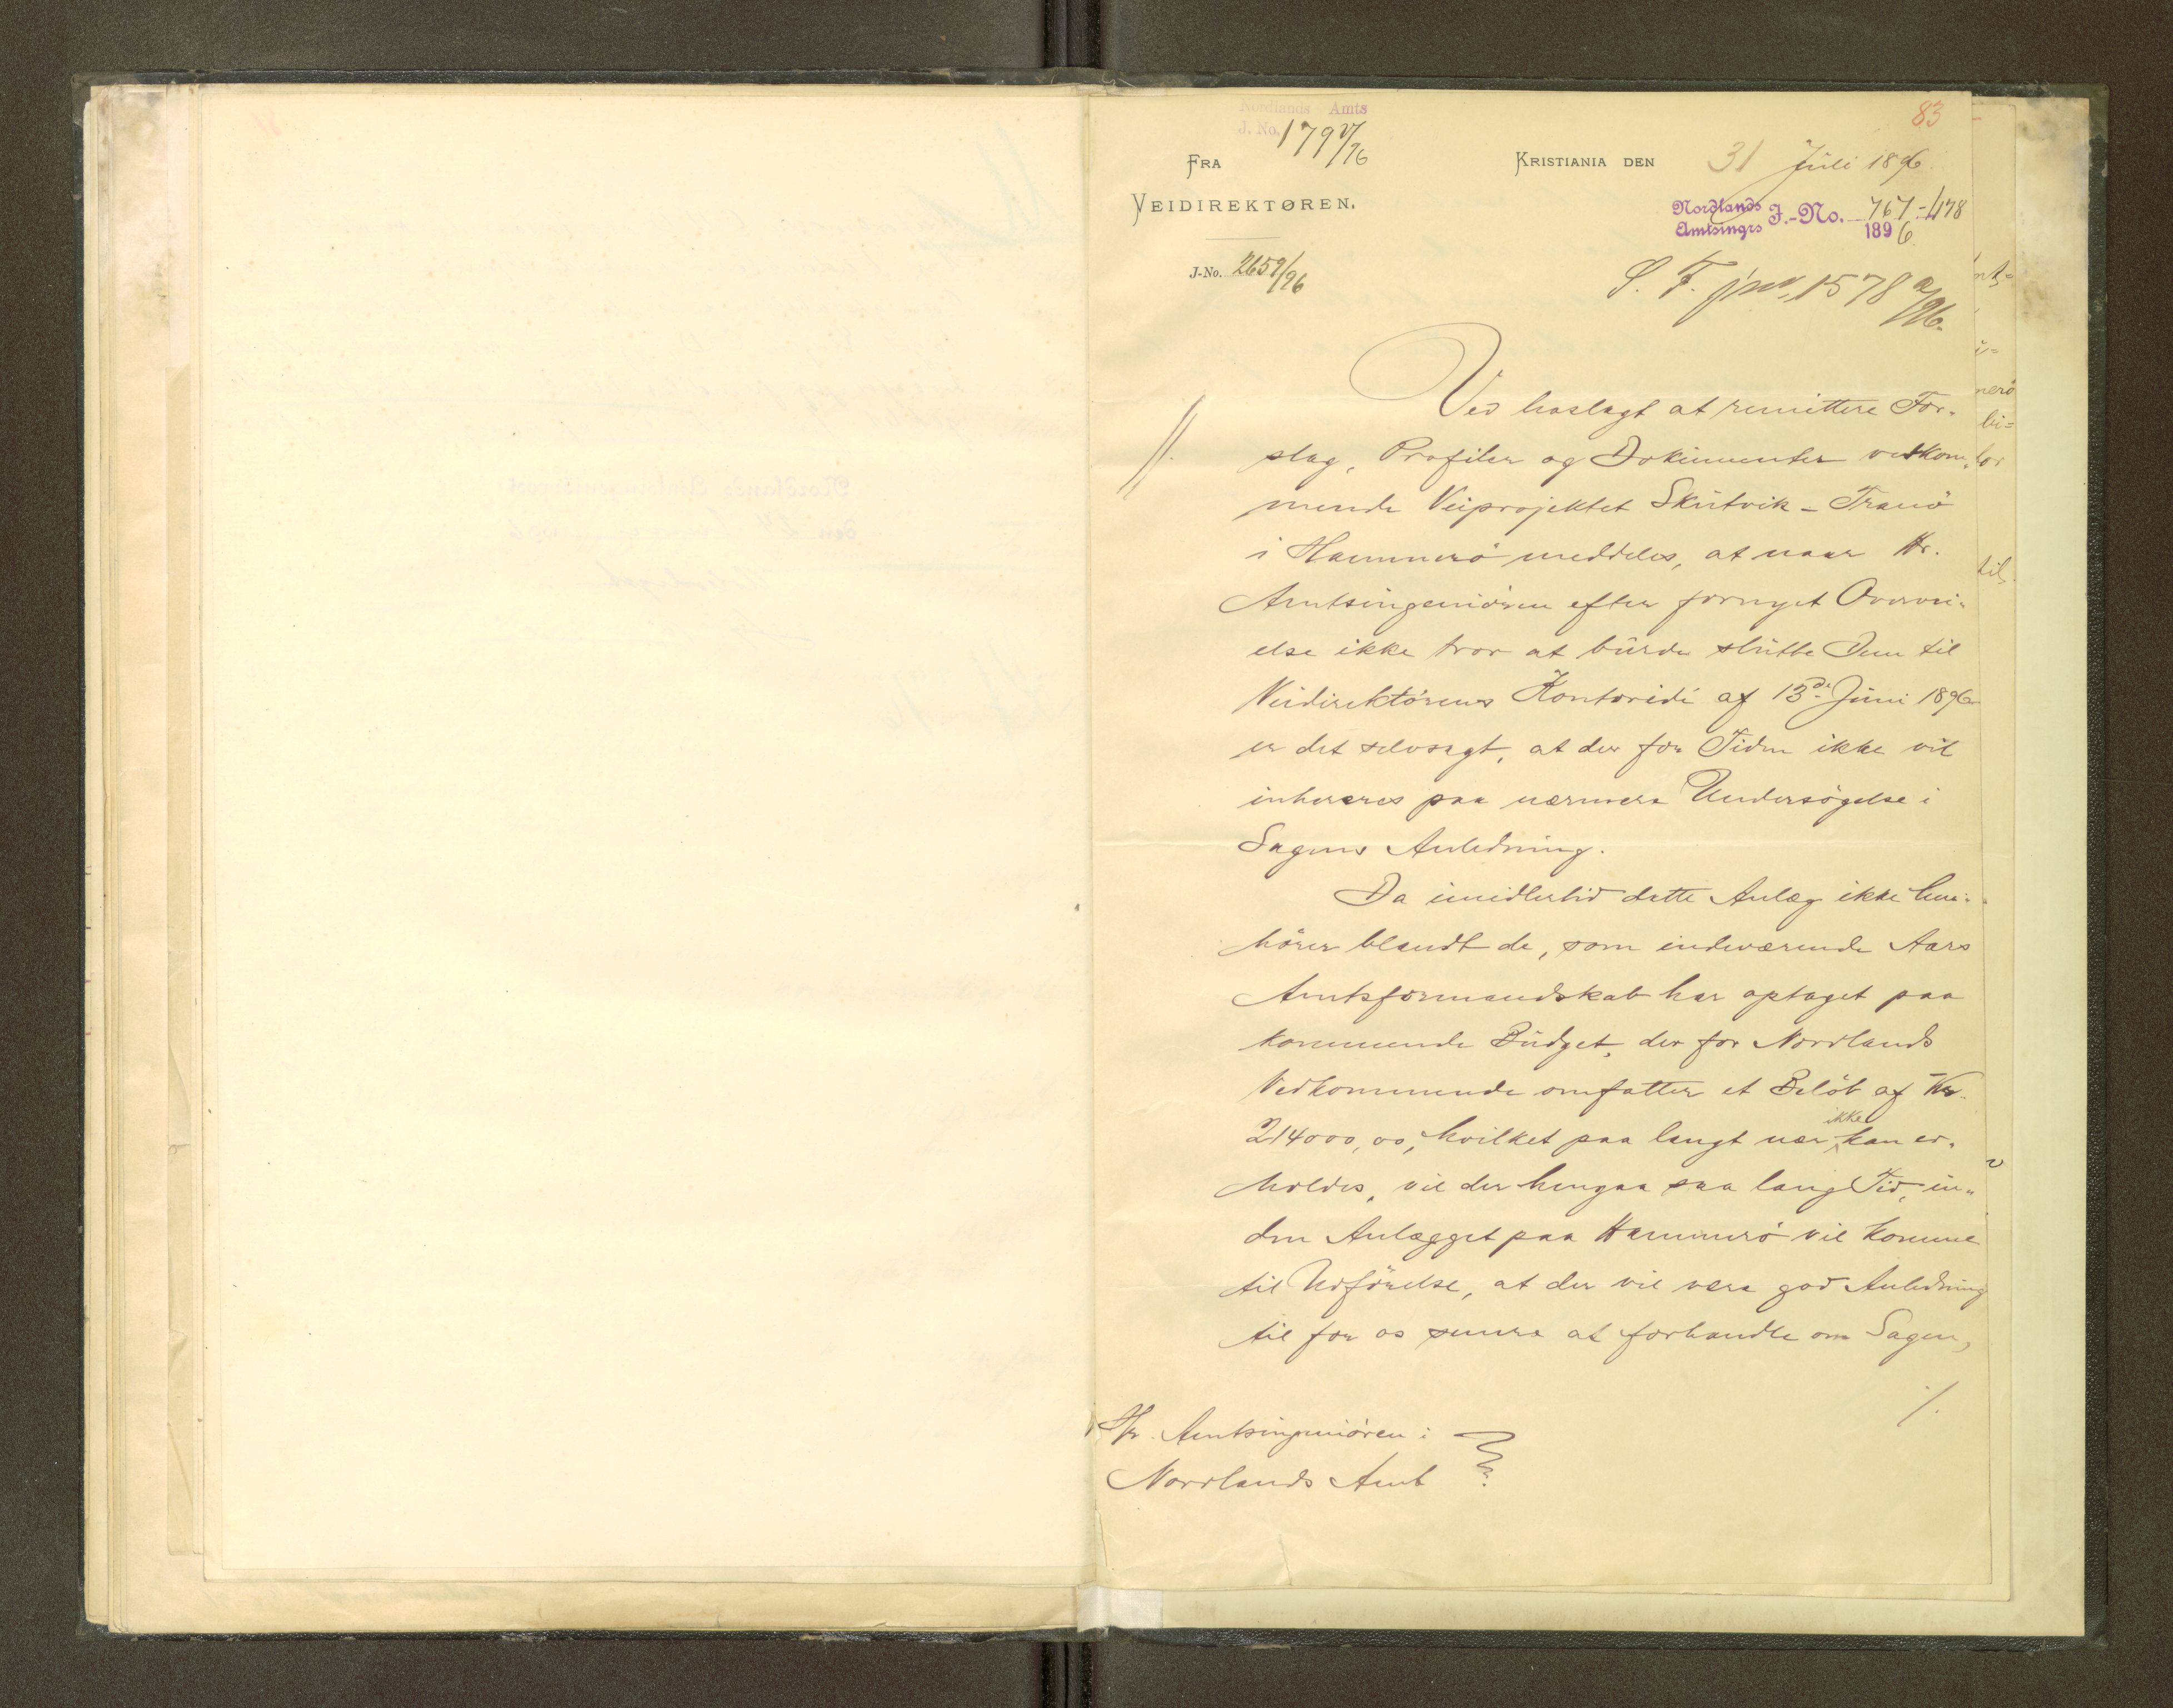 83
Nordlands Amts
J. No. 1797/96
FRA
VEIDIREKTØREN.
J-No. 2659/96
KRISTIANIA DEN 31 Juli 1896.
Nordlands Amtsingrs J.-No. 767-478
1896
S. F. jno. 1578 a/96.
Ved hoslagt at remittere For-
slag, Profiler og Dokumenter vedkom-
mende Veiprojektet Skutvik - Tranö
i Hammerö meddeles, at naar Hr.
Amtsingeniøren efter fornyet Overvei-
else ikke tror at burde slutte Dem til
Veidirektörens Kontoridé af 13de Juni 1896
er det selvsagt, at der for Tiden ikke vil
inhereres paa nærmere Undersögelse i
Sagens Anledning.
Da imidlertid dette Anlæg ikke hen-
hörer blandt de, som indeværende Aars
Amtsformandskab har optaget paa
kommende Budget, der for Nordlands
Vedkommende omfatter et Belöb af Kr.
214000,00, hvilket paa langt nær ikke kan er-
holdes, vil der hengaa saa lang Tid, in-
den Anlægget paa Hammerö vil komme
til Udförelse, at der vil være god Anledning
til for os senere at forhandle om Sagen,
./.
Hr. Amtsingeniören i
Nordlands Amt